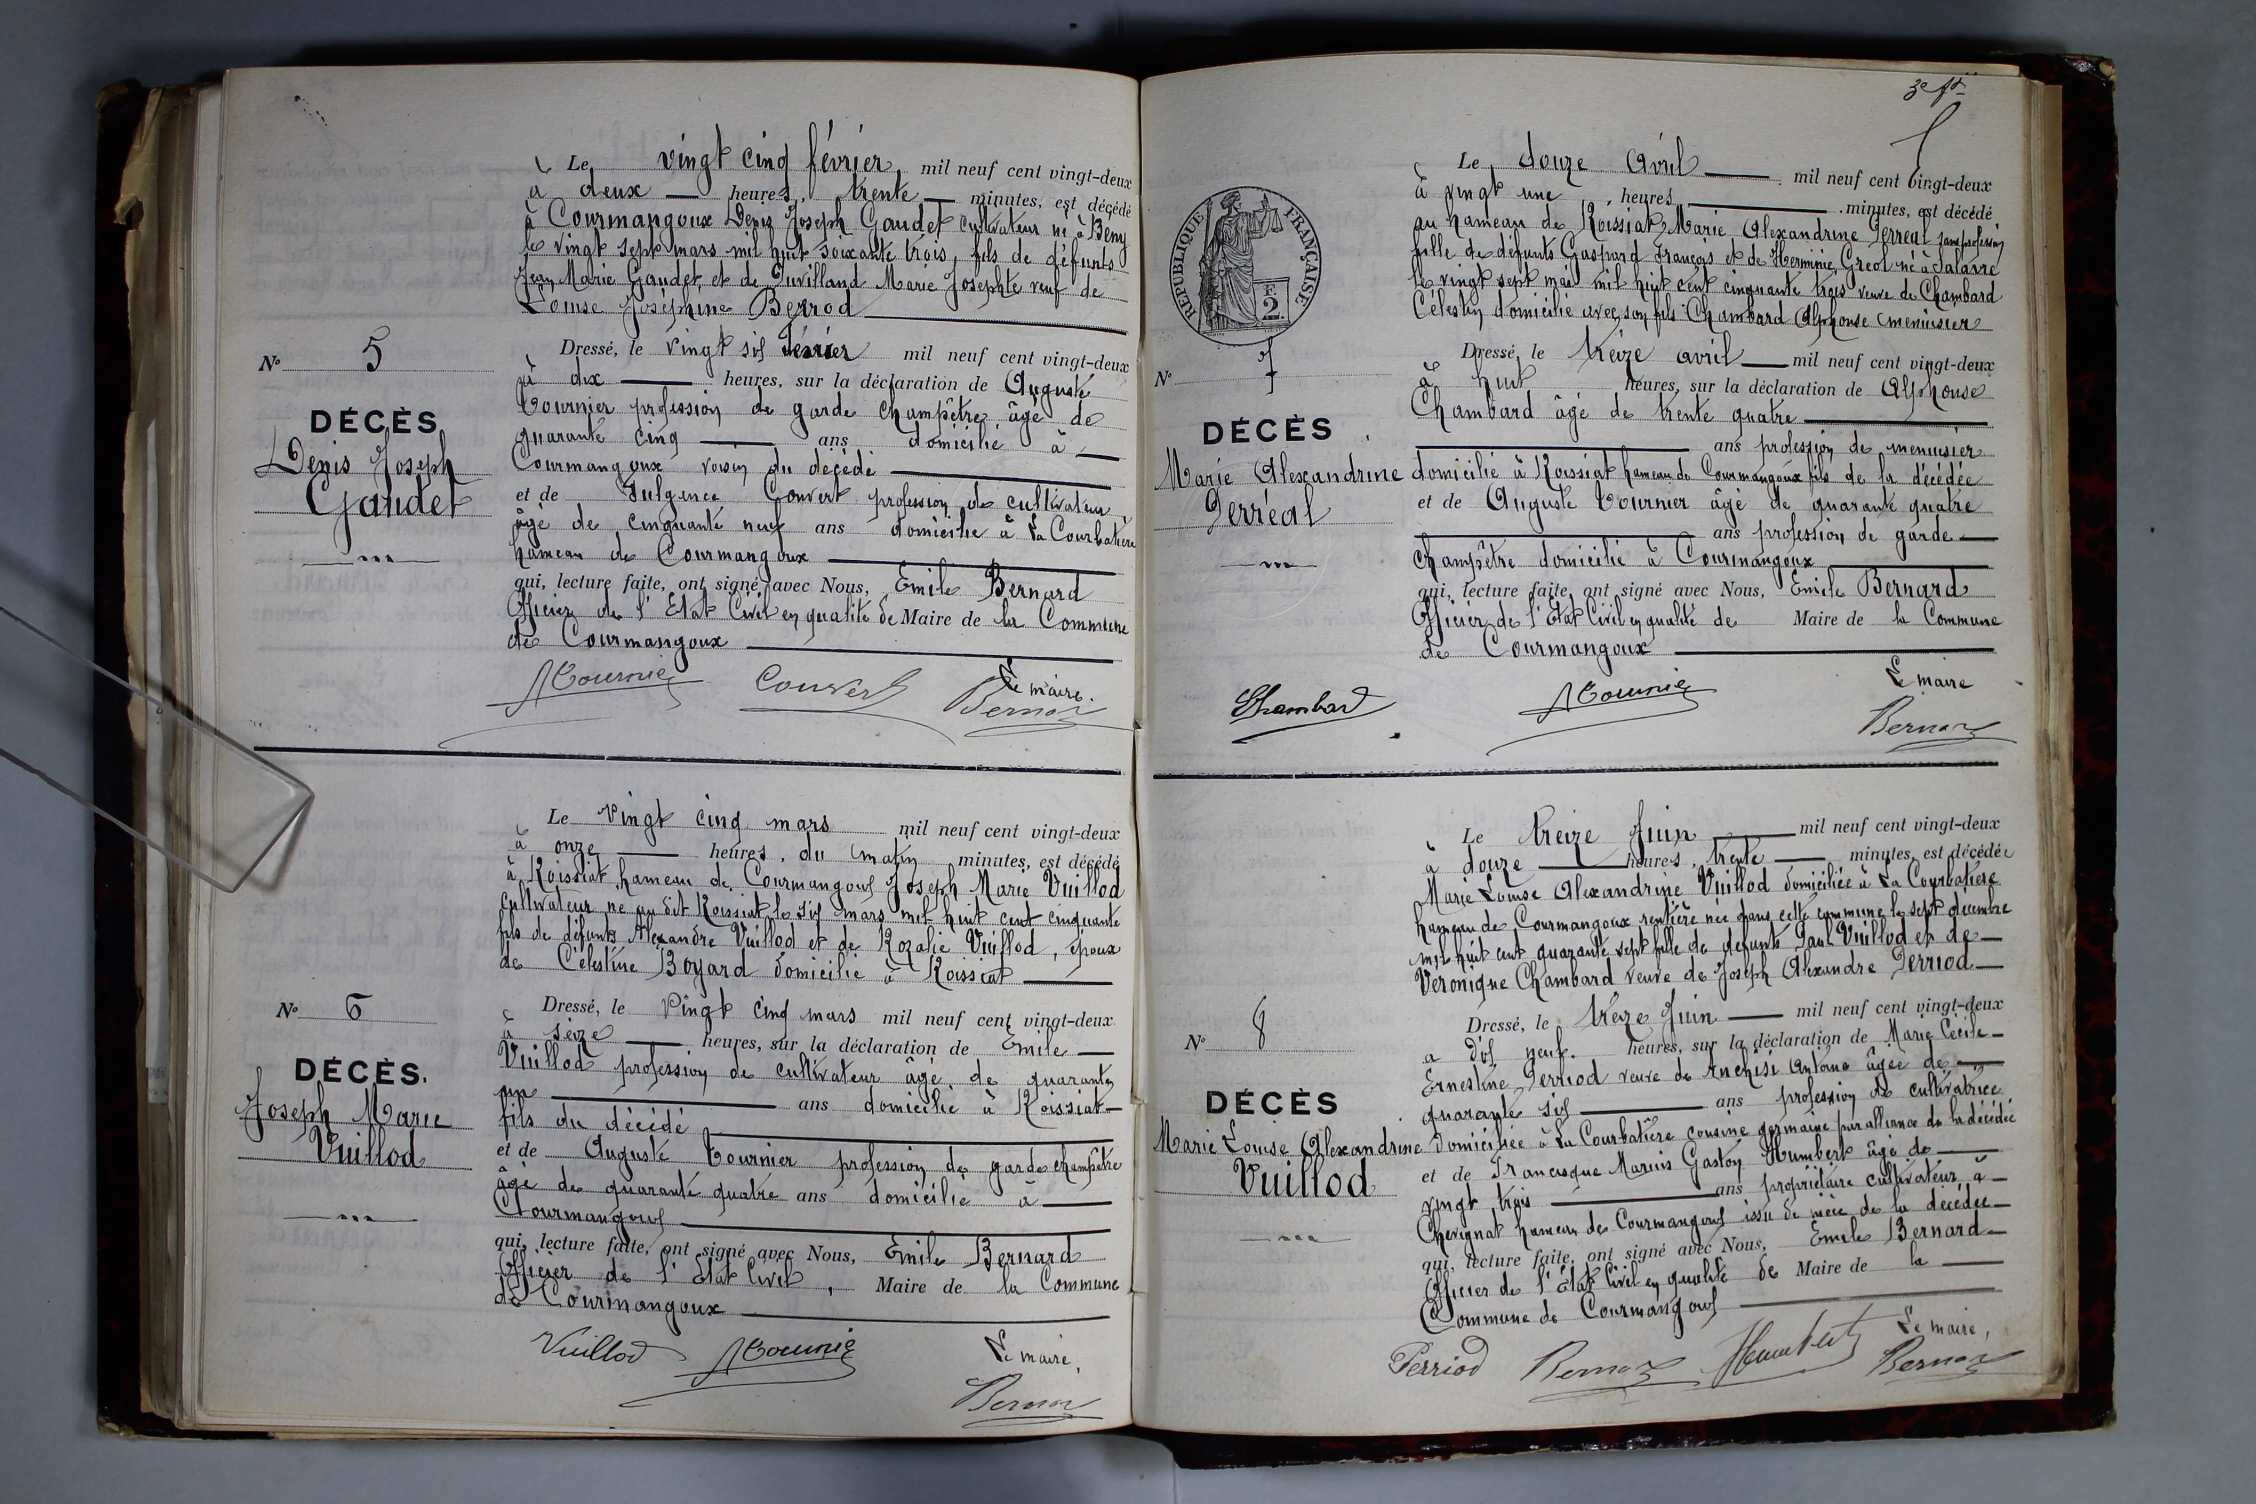 Le vingt cinq février mil neuf cent vingt-deux
à deux heures, trente minutes, est décédé
à Courmangoux Denis Joseph Gaudet cultivateur né à Beny
le vingt sept mars mil huit soixante trois, fils de défunts
Jean Marie Gaudet et de Puvilland Marie Josephte veuf de
Louise Joséphine Berrod
N° 5
DÉCÈS
Denis Joseph
Gaudet
Dressé, le vingt six février mil neuf cent vingt-deux
à dix heures, sur la déclaration de Auguste
Tournier profession de garde champêtre, âgé de
quarante cinq ans domicilié à
Courmangoux voisin du décédé
et de Fulgence Convert profession de cultivateur
âgé de cinquante neuf ans domicilié à La Courbatière
hameau de Courmangoux
qui, lecture faite, ont signé avec Nous, Emile Bernard
Officier de l'Etat Civil en qualité de Maire de la Commune
de Courmangoux
ATournier Convert Le maire.
Bernard
Le vingt cinq mars mil neuf cent vingt-deux
à onze heures, du matin minutes, est décédé
à Roissiat hameau de Courmangoux Joseph Marie Vuillod
cultivateur né au dit Roissiat le six mars mil huit cent cinquante
fils de défunts Alexandre Vuillod et de Rozalie Vuillod, époux
de Célestine Boyard domicilié à Roissiat
N° 6
DÉCÈS.
Joseph Marie
Vuillod
Dressé, le vingt cinq mars mil neuf cent vingt-deux
à seize heures, sur la déclaration de Emile
Vuillod profession de cultivateur âgé de quarante
un ans domicilié à Roissiat
fils du décédé
et de Auguste Tournier profession de garde champêtre
âgé de quarante quatre ans domicilié à
Courmangoux
qui, lecture faite, ont signé avec Nous, Emile Bernard
Officier de l'Etat Civil, Maire de la Commune
de Courmangoux
Vuillod ATournier Le maire,
Bernard
3e ft
RÉPUBLIQUE FRANÇAISE
2
Le douze avril mil neuf cent vingt-deux
à vingt une heures minutes, est décédé
au hameau de Roissiat Marie Alexandrine Perréal sans profession
fille de défunts Gaspard François et de Herminie Gréol né à Salavre
le vingt sept mai mil huit cent cinquante trois veuve de Chambard
Célestin domicilié avec son fils Chambard Alphonse menuisier
N° 7
DÉCÈS
Marie Alexandrine
Perréal
Dressé, le treize avril mil neuf cent vingt-deux
à huit heures, sur la déclaration de Alphonse
Chambard âgé de trente quatre
ans profession de menuisier
domicilié à Roissiat hameau de Courmangoux fils de la décédée
et de Auguste Tournier âgé de quarante quatre
ans profession de garde
champêtre domicilié à Courmangoux
qui, lecture faite, ont signé avec Nous, Emile Bernard
Officier de l'Etat Civil en qualité de Maire de la Commune
de Courmangoux
Chambard ATournier Le maire
Bernard
Le treize Juin mil neuf cent vingt-deux
à douze heures, trente minutes, est décédée
Marie Louise Alexandrine Vuillod domiciliée à La Courbatière
hameau de Courmangoux rentière née dans cette commune le sept décembre
mil huit cent quarante sept fille de défunts Paul Vuillod et de
Veronique Chambard veuve de Joseph Alexandre Perriod
N° 8
DÉCÈS
Marie Louise Alexandrine
Vuillod
Dressé, le treize Juin mil neuf cent vingt-deux
a dix neuf heures, sur la déclaration de Marie Cécile
Ernestine Perriod veuve de Anchisi Antoine âgée de
quarante six ans profession de cultivatrice
domiciliée à La Courbatière cousine germaine par alliance de la décédée
et de Francisque Marius Gaston Humbert âgé de
vingt trois ans propriétaire cultivateur à
Chevignat hameau de Courmangoux issu de mère de la décédée
qui, lecture faite, ont signé avec Nous, Emile Bernard
Officier de l'Etat Civil en qualité de Maire de la
Commune de Courmangoux
Perriod Bernard Humbert Le maire,
Bernard